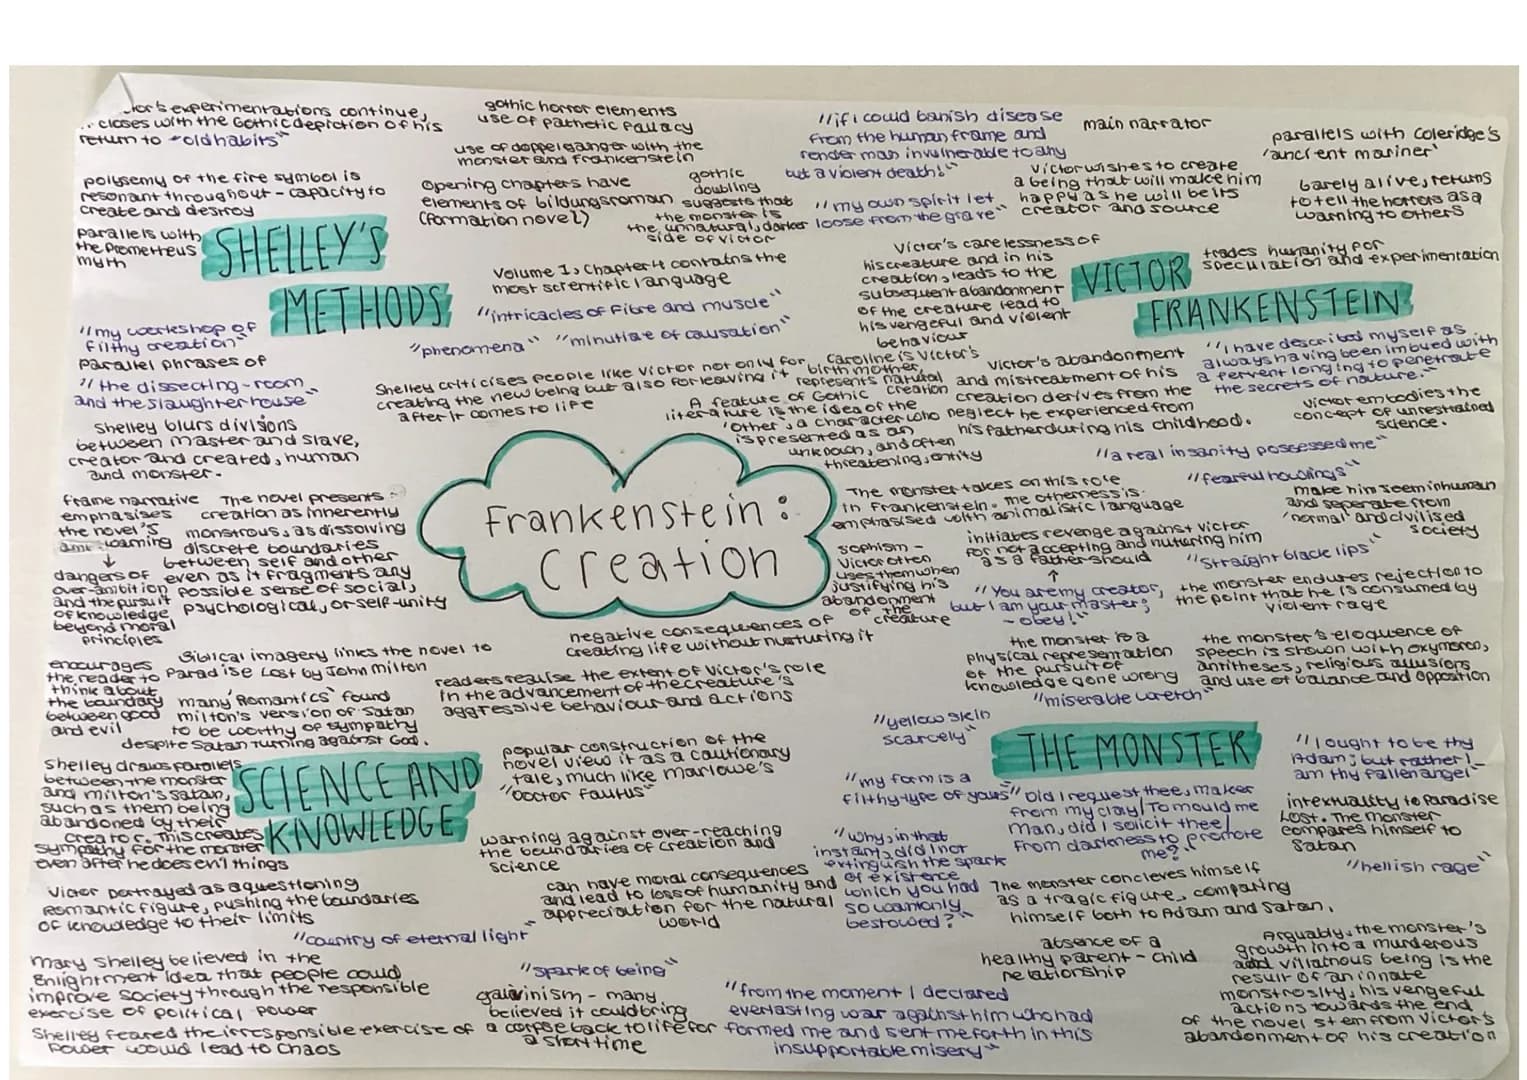 experimentations continue,
closes with the Gothic depiction of his
return to "old habits"
gothic horror elements
use of pathetic fallacy
use of doppelganger with the
monster and Frankenstein
polysemy of the fire symbol is
resonant throughout - capacity to
create and destroy
Opening chapters have
elements of bildungsroman
(formation novel)
gothic
doubling
suggests that
the monster is
the unnatural, darker
side of victor
parallels with
the Prometheus
myth
SHELLEY'S
METHODS
Volume 1, Chapter 4 contains the
most scientific language
"intricacies of fibre and muscle"
"phenomena" "minutiae of causation"
"my workshop of
filthy creation"
parallel phrases of
"the dissecting-room
and the slaughter house"
Shelley blurs divisions
between master and slave,
creator and created, human
and monster.
Shelley criticises people like Victor not only for
creating the new being but also for leaving it
after it comes to life
Caroline is Victor's
birth mother,
represents natural
creation
A feature of Gothic
literature is the idea of the
'other', a character who
is presented as an
and often
threatening, entity
"if i could banish disease
from the human frame and
render man invulnerable to any
but a violent death!"
"my own spirit let
loose from the grave"
main narrator
Victor wishes to create
a being that will make him
happy as he will be its
creator and source
parallels with Coleridge's
'ancient mariner'
barely alive, returns
to tell the horrors as a
warning to others
Victor's carelessness of
his creature and in his
creation, leads to the
subsequent abandonment
of the creature lead to
his vengeful and violent
behaviour
VICTOR
FRANKENSTEIN
trades humanity for
speculation and experimentation
"I have described myself as
always having been imbued with
a fervent longing to penetrate
the secrets of nature."
Victor's abandonment
and mistreatment of his
creation derives from the
neglect he experienced from
his father during his childhood.
victor embodies the
concept of unrestrained
science.
"a real insanity possessed me"
Frankenstein:
Creation
frame narrative
emphasises
the novel's
warning
↓
dangers of
over-ambition
and the pursuit
of knowledge
beyond moral
principles
The novel presents
creation as inherently
monstrous, as dissolving
discrete boundaries
between self and other
even as it fragments any
possible sense of social,
psychological, or self-unity
The monster takes on this role
in Frankenstein. The otherness is
emphasised with animalistic language
"fearful howlings"
make him seem inhuman
and seperate from
'normal' and civilised
society
sophism -
Victor often
uses them when
justifying his
abandonment
of the
creature
initiates revenge against Victor
for not accepting and nuturing him
as a father should
↑
"You are my creator,
but I am your master;
- obey!"
"Straight black lips"
the monster endures rejection to
the point that he is consumed by
violent rage
negative consequences of
creating life without nurturing it
readers realise the extent of Victor's role
in the advancement of the creature's
aggressive behaviour and actions
the monster is a
physical representation
of the pursuit of
knowledge gone wrong
the monster's eloquence of
speech is shown with oxymoron,
antitheses, religious allusions
and use of balance and opposition
"miserable wretch"
Biblical imagery links the novel to
Paradise Lost by John Milton
encourages
the reader to
think about
the boundary
between good
and evil
many 'Romantics' found
milton's version of Satan
to be worthy of sympathy
despite Satan turning against God.
Shelley draws parallels
between the monster
and milton's Satan,
such as them being
abandoned by their
creator. This creates
sympathy for the monster
even after he does evil things
SCIENCE AND
KNOWLEDGE
popular construction of the
novel view it as a cautionary
tale, much like Marlowe's
"Doctor Faustus"
warning against over-reaching
the boundaries of creation and
science
can have moral consequences
and lead to loss of humanity and
appreciation for the natural
world
Victor portrayed as a questioning
Romantic figure, pushing the boundaries
of knowledge to their limits
"country of eternal light"
Mary Shelley believed in the
Enlightment idea that people could
improve society through the responsible
exercise of political power
Shelley feared the irresponsible exercise of
power would lead to chaos
"spark of being"
many
believed it could bring
a corpse back to life for
a short time
"yellow skin
scarcely"
THE MONSTER
"my form is a
filthy type of yours"
"Did I request thee, maker
from my clay/ To mould me
man, did I solicit thee/
From darkness to promote
me?"
"I ought to be thy
Adam; but rather I
am thy fallen angel"
intextuality to Paradise
Lost. The monster
compares himself to
Satan
"hellish rage"
"why, in that
instant, did I not
extinguish the spark
of existence
which you had
so wantonly
bestowed?"
The monster concieves himself
as a tragic figure, comparing
himself both to Adam and Satan.
absence of a
healthy parent - child
relationship
"from the moment I declared
everlasting war against him who had
formed me and sent me forth in this
insupportable misery"
Arguably, the monster's
growth into a murderous
and villainous being is the
result of an innate
monstrosity, his vengeful
actions towards the end
of the novel stem from Victor's
abandonment of his creation